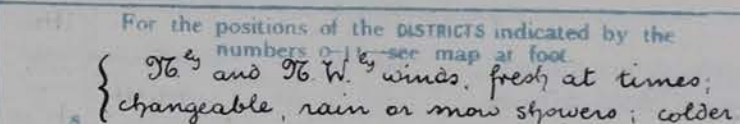 For the positions of the DISTRICTS indicated by the
numbers 0-1 see map at foot
N.ey and N.W.ey winds, fresh at times;
changeable, rain or snow showers; colder